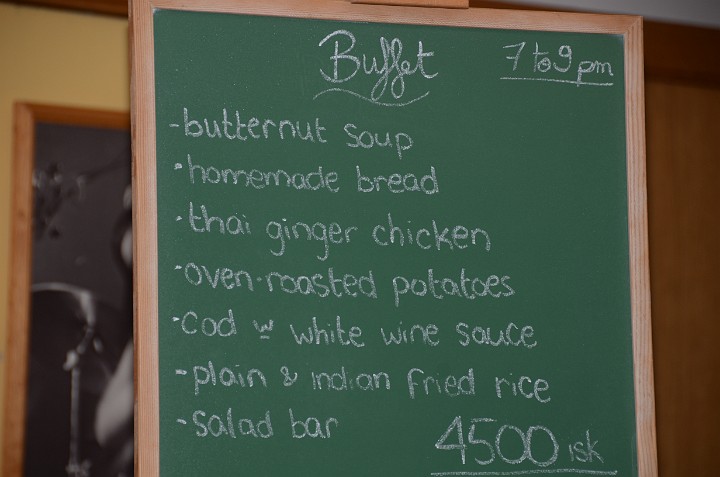 Buffet 7 to 9 pm
-butternut soup
-homemade bread
-thai ginger chicken
-oven-roasted potatoes
-cod w white wine sauce
-plain & indian fried rice
-salad bar
4500 isk